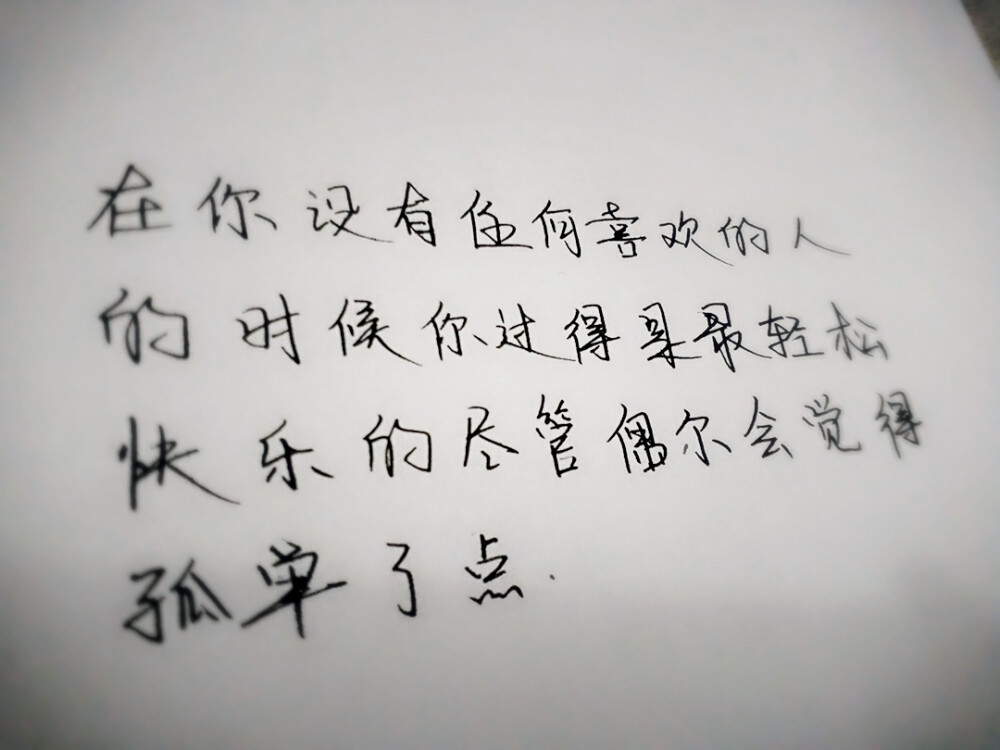 在你没有任何喜欢的人
的时候你过得是最轻松
快乐的尽管偶尔会觉得
孤单了点.